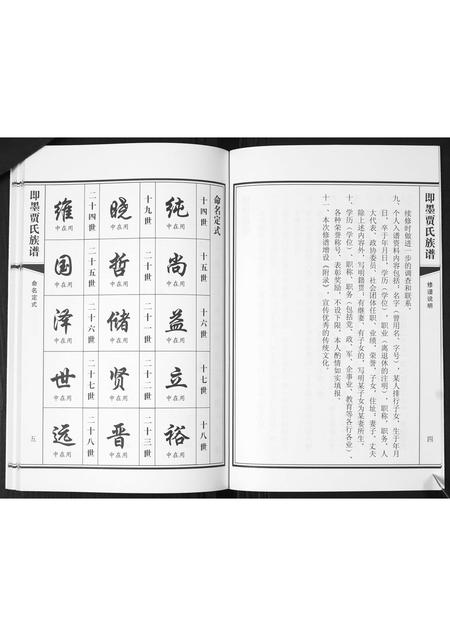 即墨贾氏族谱
修谱说明
四
续修时做进一步的调查和联系。
九、个人入谱资料内容包括：名字（曾用名、字号），某人排行子女，生于年月
日，卒于年月日，学历（学位），职业（离退休的注明），职称，职务，人
大代表、政协委员、社会团体任职，业绩，荣誉，子女，住址；妻子、丈夫
除上述内容外，写明籍贯；有继妻，有子女的，写明某子女为某妻所生。
十、学历（学位），职称，职务（包括党、政、军、企事业、教育等各行各业），
各种荣誉称号，表彰奖励，不设下限，本人酌情如实填报。
十一、本次修谱增设《附录》，宣传优秀的传统文化。
命名定式
十四世 十五世 十六世 十七世 十八世
纯 尚 益 立 裕
中在用 中在用
十九世 二十世 二十一世 二十二世 二十三世
晓 哲 储 贤 晋
中在用 中在用 中在用 中在用 中在用
二十四世 二十五世 二十六世 二十七世 二十八世
维 国 泽 世 远
中在用 中在用 中在用 中在用 中在用
即墨贾氏族谱
命名定式
五